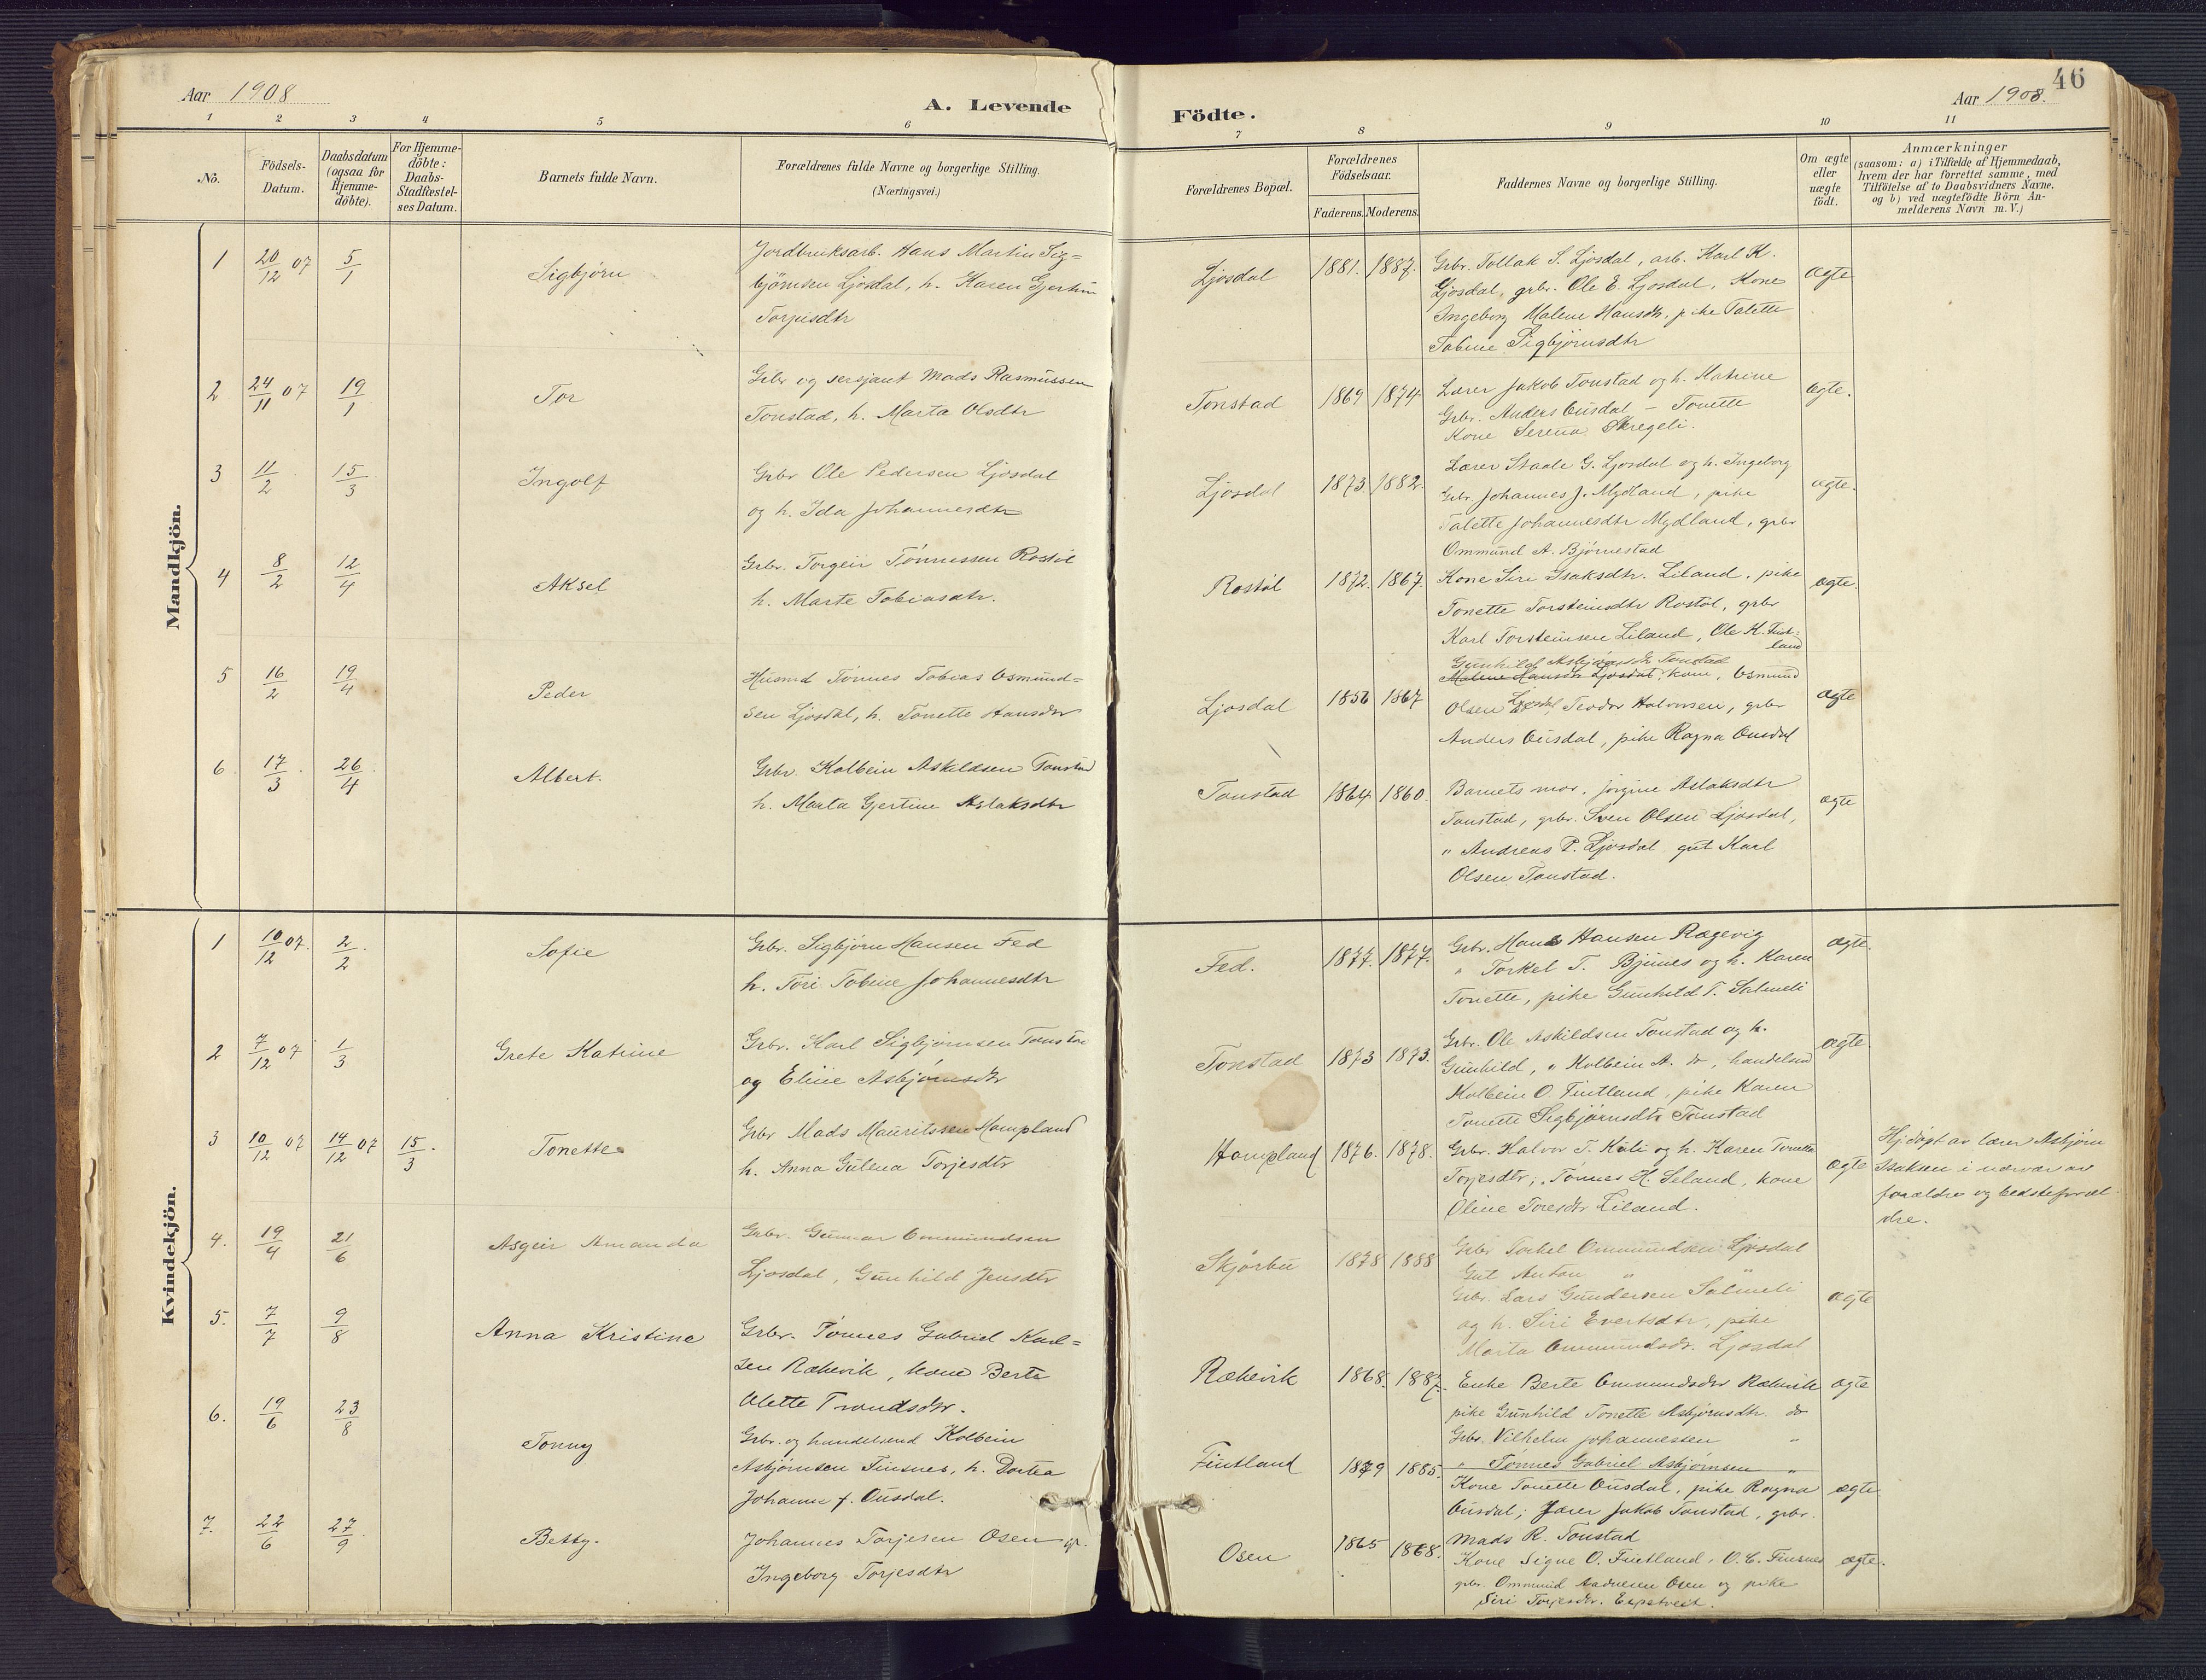 46
Aar 1908
A. Levende
Födte.
Aar 1908.
1 2 3 4 5 6 7 8 9 10 11
No.
Födsels-Datum.
Daabsdatum (ogsaa for Hjemme-döbte).
For Hjemme-döbte: Daabs-Stadfæstel-ses Datum.
Barnets fulde Navn.
Forældrenes fulde Navne og borgerlige Stilling.
(Næringsvei.)
Forældrenes Bopæl.
Forældrenes Födselsaar.
Faderens. Moderens.
Faddernes Navne og borgerlige Stilling.
Om ægte eller uægte födt.
Anmærkninger
(saasom: a) i Tilfælde af Hjemmedaab,
hvem der har forrettet samme, med
Tilföielse af to Daabsvidners Navne,
og b) ved uægtefödte Börn An-
melderens Navn m. V.)
Mandkjön.
1 20/12 07 5/1 Sigbjørn
Jordbruksarb. Hans Martin Sig=
bjørnsen Ljosdal, h. Karen Gjertine
Torjusdtr
Ljosdal 1881. 1887.
Grbr. Tollak S. Ljosdal, arb. Karl K.
Ljosdal, grbr. Ole E. Ljosdal, Kone
Ingeborg Malene Hansdtr, pike Talette
Tobine Sigbjørnsdtr
ægte
2 24/11 07 19/1 Tor
Grbr og sersjant Mads Rasmussen
Tonstad, h. Marta Olsdtr
Tonstad 1869 1874
Lærer Jakob Tonstad og h. Katrine
Grbr. Anders Ousdal – Tonette
Kone Serena Skregeli.
ægte.
3 11/2 15/3 Ingolf
Grbr Ole Pedersen Ljosdal
og h. Ida Johannesdtr
Ljosdal 1873 1882.
Lærer Staale G. Ljosdal og h. Ingeborg
Grbr. Johannes J. Mydland, pike
Talette Johannesdtr Mydland, grbr
Ommund A. Bjørnestad
ægte.
4 8/2 12/4 Aksel
Grbr. Torgeir Tønnessen Rostøl
h. Marte Tobiasdtr.
Rostøl 1872. 1867
Kone Siri Isaksdtr. Liland, pike
Tonette Torsteinsdtr Rostøl, grbr
Karl Torsteinsen Liland, Ole K. Fint=
land
ægte.
5 16/2 19/4 Peder
Husmd Tønnes Tobias Osmund=
sen Ljosdal, h. Tonette Hansdtr
Ljosdal 1856 1867
Gunhild Asbjørnsdtr Tonstad
Malene Hansdtr Ljosdal, kone, Osmund
Olsen Ljosdal, Teodor Halvorsen, grbr
Anders Ousdal, pike Ragna Ousdal
ægte
6 17/3 26/4 Albert.
Grbr. Kolbein Askildsen Tonstad
h. Marta Gjertine Aslaksdtr
Tonstad 1864 1860.
Barnets mor. Jørgine Aslaksdtr
Tonstad, grbr. Sven Olsen Ljosdal,
" Andreas P. Ljosdal gut Karl
Olsen Tonstad.
ægte
Kvindekjön.
1 10/12 07. 2/2 Sofie
Grbr. Sigbjørn Hansen Fed
h. Tori Tobine Johannesdtr
Fed. 1877. 1877.
Grbr. Hans Hansen Rægevig
" Torkel T. Bjunes og h. Karen
Tonette, pike Gunhild T. Salmeli
ægte.
2 7/12 07 1/3 Grete Katrine
Grbr. Karl Sigbjørnsen Tonstad
og Eline Asbjørnsdtr
Tonstad 1873 1873.
Grbr. Ole Askildsen Tonstad og h.
Gunhild, " Kolbein A. do, handelsmd
Kolbein O. Fintland, pike Karen
Tonette Sigbjørnsdtr Tonstad
ægte
3 10/12 07 14/12 07 15/3 Tonette
Grbr Mads Mauritssen Hompland
h. Anna Gulena Torjesdtr
Hompland 1876. 1878.
Grbr. Halvor T. Kvili og h. Karen Tonette
Torjesdtr; " Tønnes H. Seland, kone
Oline Toresdtr Liland.
ægte
Hj.døpt av lærer Asbjørn
Isaksen i nærvær av
forældre og bedsteforæl
dre.
4. 19/4 21/6 Asgeir Amanda
Grbr. Gunnar Ommundsen
Ljosdal, Gunhild Jensdtr
Skjørbu 1878 1888
Grbr Torkel Ommundsen Ljosdal
Gut Anton " "
Grbr. Lars Gundersen Salmeli
og h. Siri Evertsdtr, pike
Marta Ommundsdtr. Ljosdal
ægte
5. 7/7 9/8 Anna Kristine
Grbr. Tønnes Gabriel Karl=
sen Rækevik, kone Berte
Alette Trondsdtr.
Rækevik 1868. 1887.
Enke Berte Ommundsdtr Rækevik
pike Gunhild Tonette Asbjørnsdtr. do
Grbr. Vilhelm Johannessen "
" Tønnes Gabriel Asbjørnsen "
ægte
6. 19/6 23/8 Tonny
Grbr. og handelsmd Kolbein
Asbjørnsen Finsnes, h. Dortea
Johanne f. Ousdal.
Fintland 1879 1885.
Kone Tonette Ousdal, pike Ragna
Ousdal; Lærer Jakob Tonstad, grbr.
Mads R. Tonstad
ægte
7. 22/6 27/9 Betty.
Johannes Torjesen Osen og.
Ingeborg Torjesdtr
Osen 1865 1868.
Kone Signe O. Fintland, O. E. Finsnes
grbr. Ommund Aadnesen Osen og pike
Siri Torjesdtr. Espetveit.
ægte.